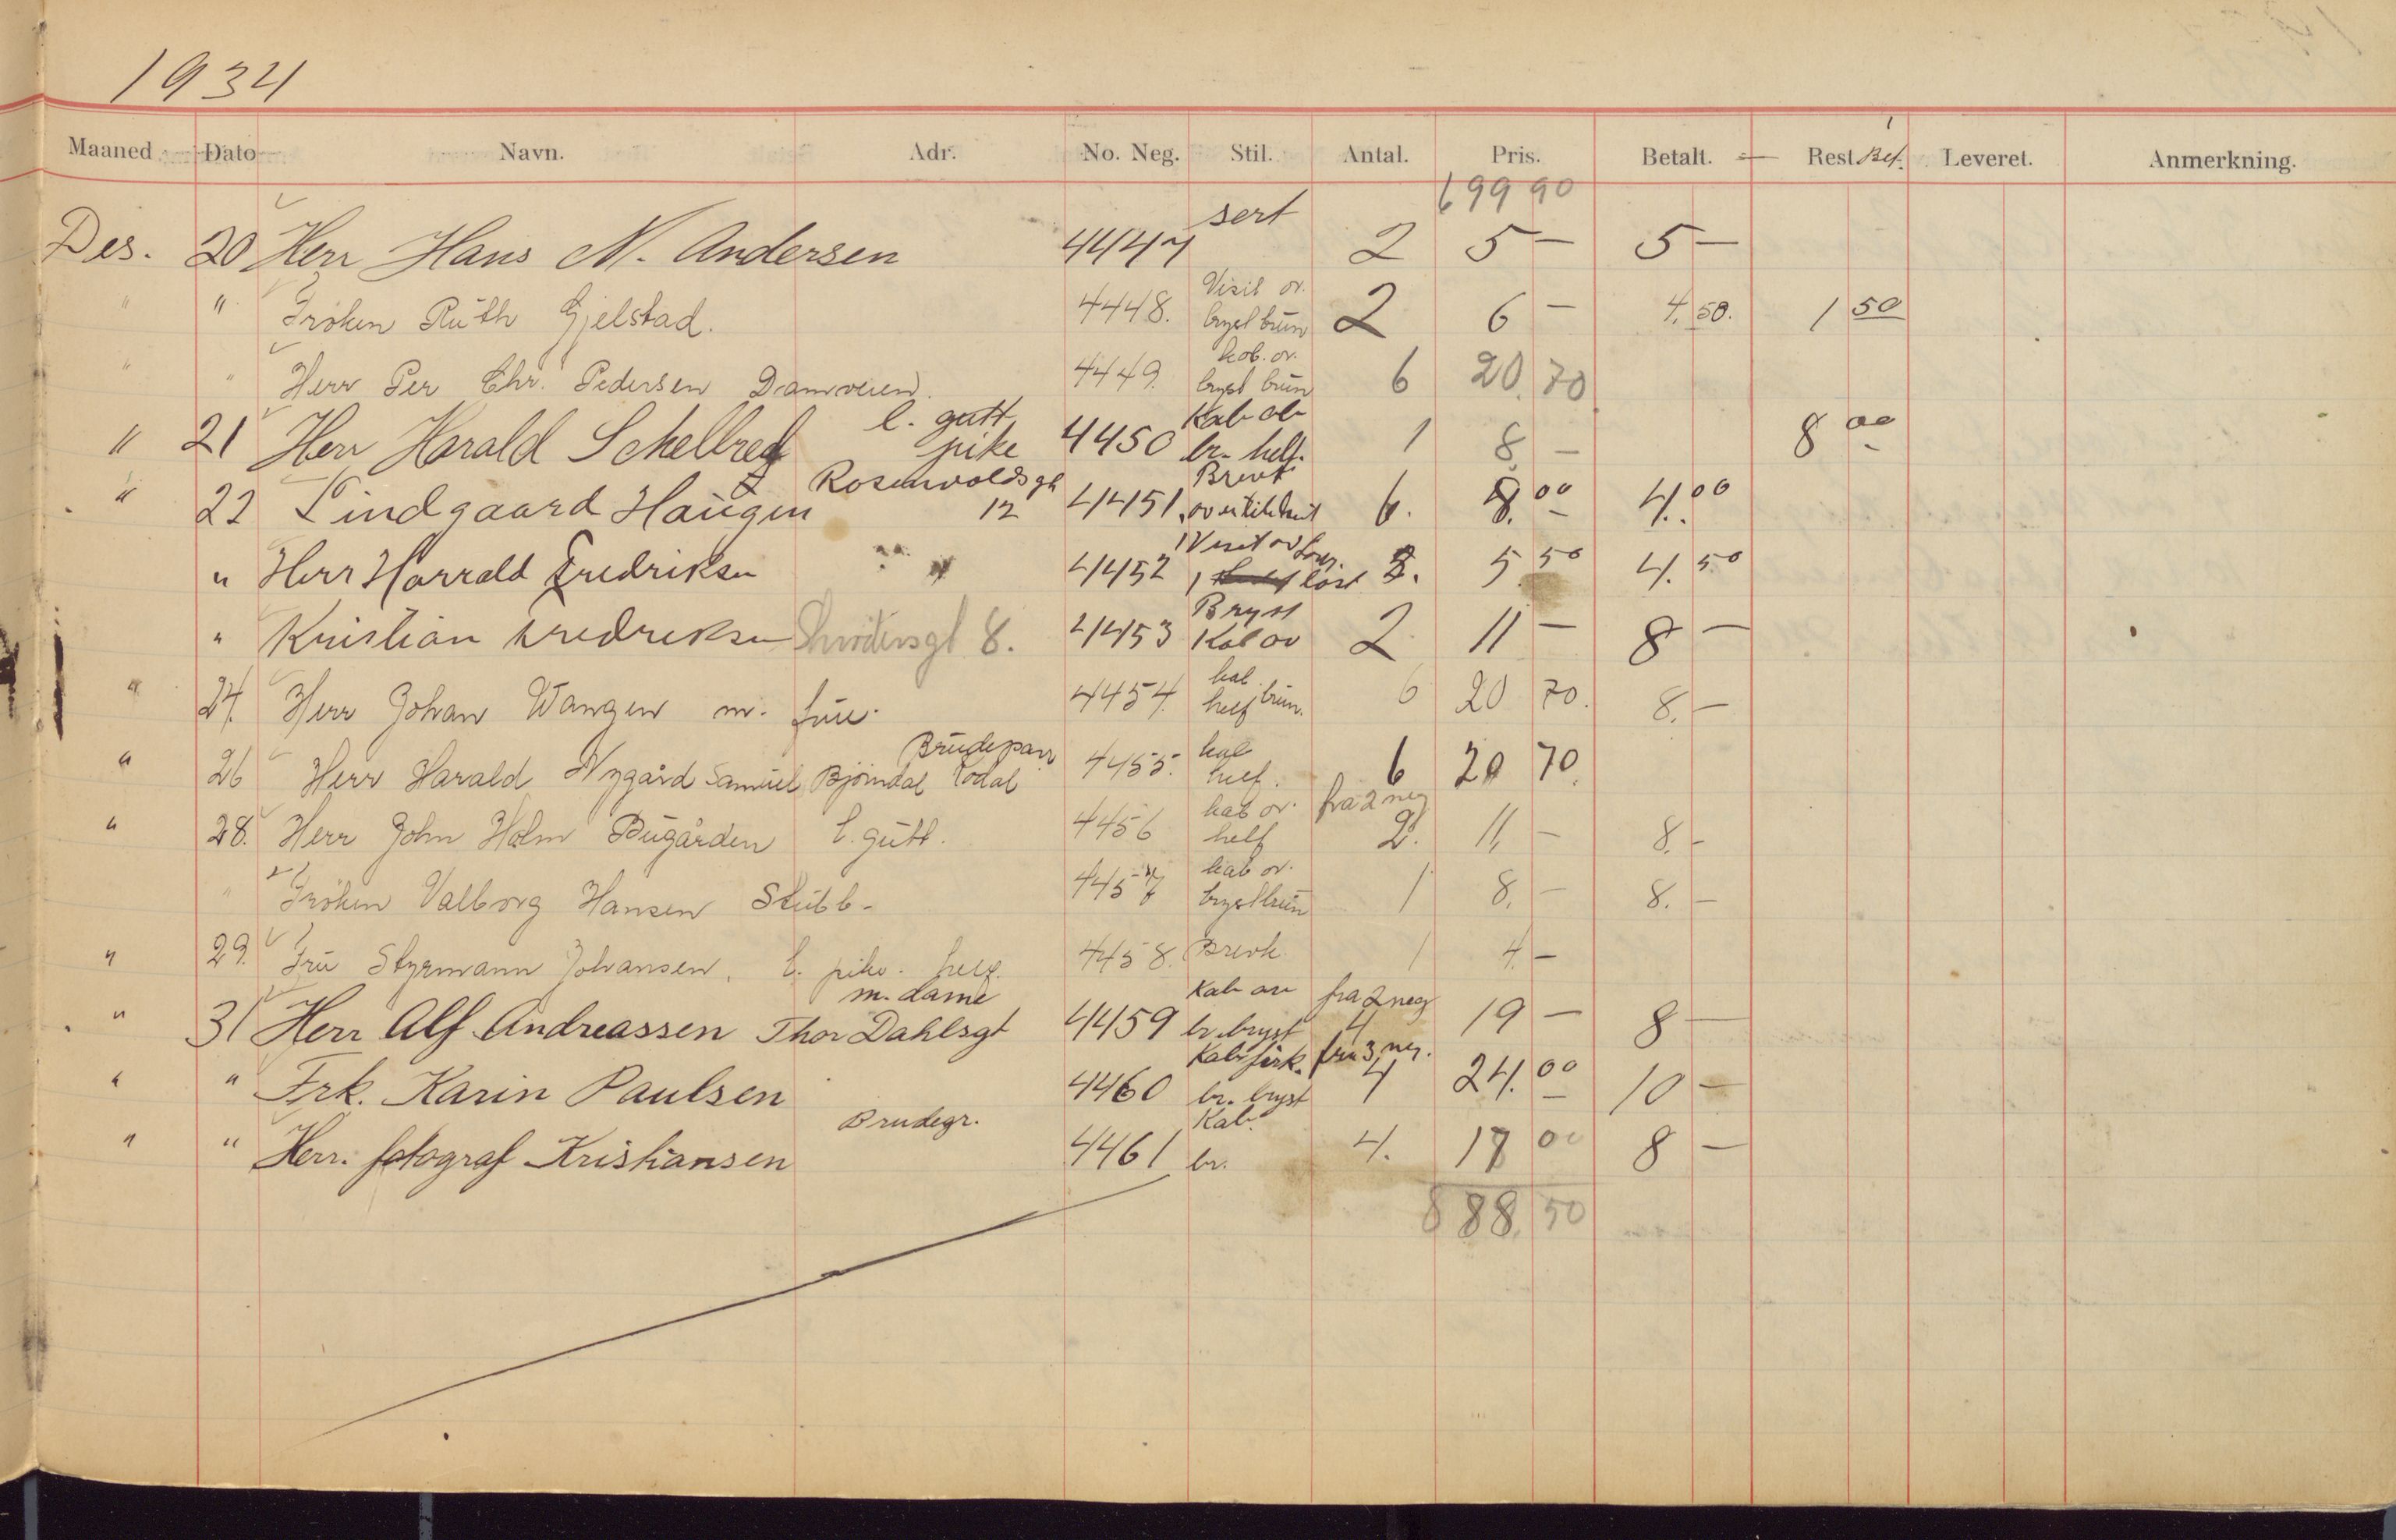 1934
Maaned Dato Navn. Adr. No. Neg. Stil. Antal. Pris. Betalt. Rest Bet. Leveret. Anmerkning.
699 90
sert
Des. 20 Herr Hans N. Andersen 4447 2 5 — 5 —
Visit ov.
" " Fröken Ruth Gjelstad. 4448. bryst brun 2 6 — 4.50. 1 50
kab. ov.
" " Herr Per Chr. Pedersen Damveien. 4449. bryst brun 6 20.70
l. gutt Kab ov
" 21 Herr Harald Schelbred pike 4450 br. helf. 1 8 — 8 00
Rosenvoldsgt Brevk
" 22 Lindgaard Haugen 12 4451. 6. 8.00 4.00
1 Visit ov
" Herr Harrald Fredriksen 4452 1 löst 3. 5.50 4.50
Bryst
" Kristian Fredriksen 8. 4453 Kab ov 2 11 — 8 —
kab.
" 24. Herr Johan Wangen m. frue. 4454. helf brun. 6 20 70. 8. —
Brudepar kab
" 26 Herr Harald Nygård Samuel Bjöindal Todal 4455. helf. 6 20 70.
kab ov. fra 2 neg
" 28. Herr John Holm Bugården l. gutt. 4456 helf 2. 11, — 8. —
kab ov.
" Fröken Valborg Hansen Stubb. 4457 bryst brun 1 8. — 8. —
" 29. Fru Styrmann Johansen. l. pike. helf. 4458. Brevk 1 4. —
m. dame Kab ov fra 2 neg
" 31 Herr Alf Andreassen Thor Dahlsgt 4459 br. bryst 4 19 — 8 —
Kab firk. fra 3 neg.
" " Frk. Karin Paulsen 4460 br. bryst 4 24.00 10 —
Brudegr. Kab.
" " Herr. fotograf Kristiansen 4461 br. 4. 17 00 8 —
888.50